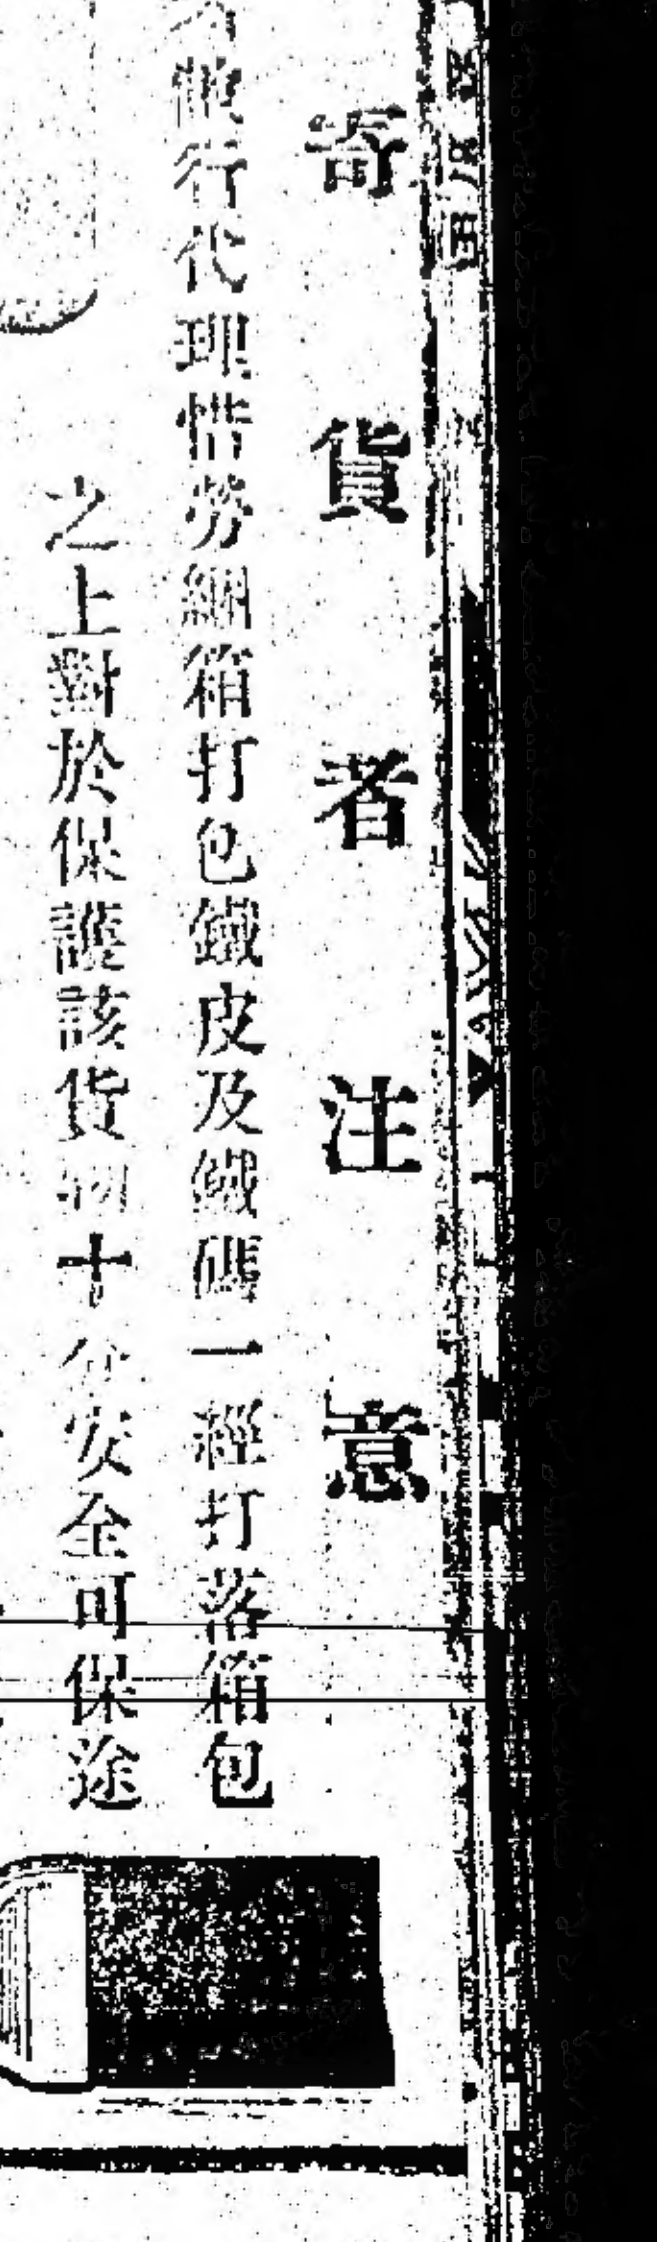 寄貨者注意
行代理惜勞綑箱打包鐵皮及鐵碼一經打落箱包
之上對於保護該貨物十分安全可保途